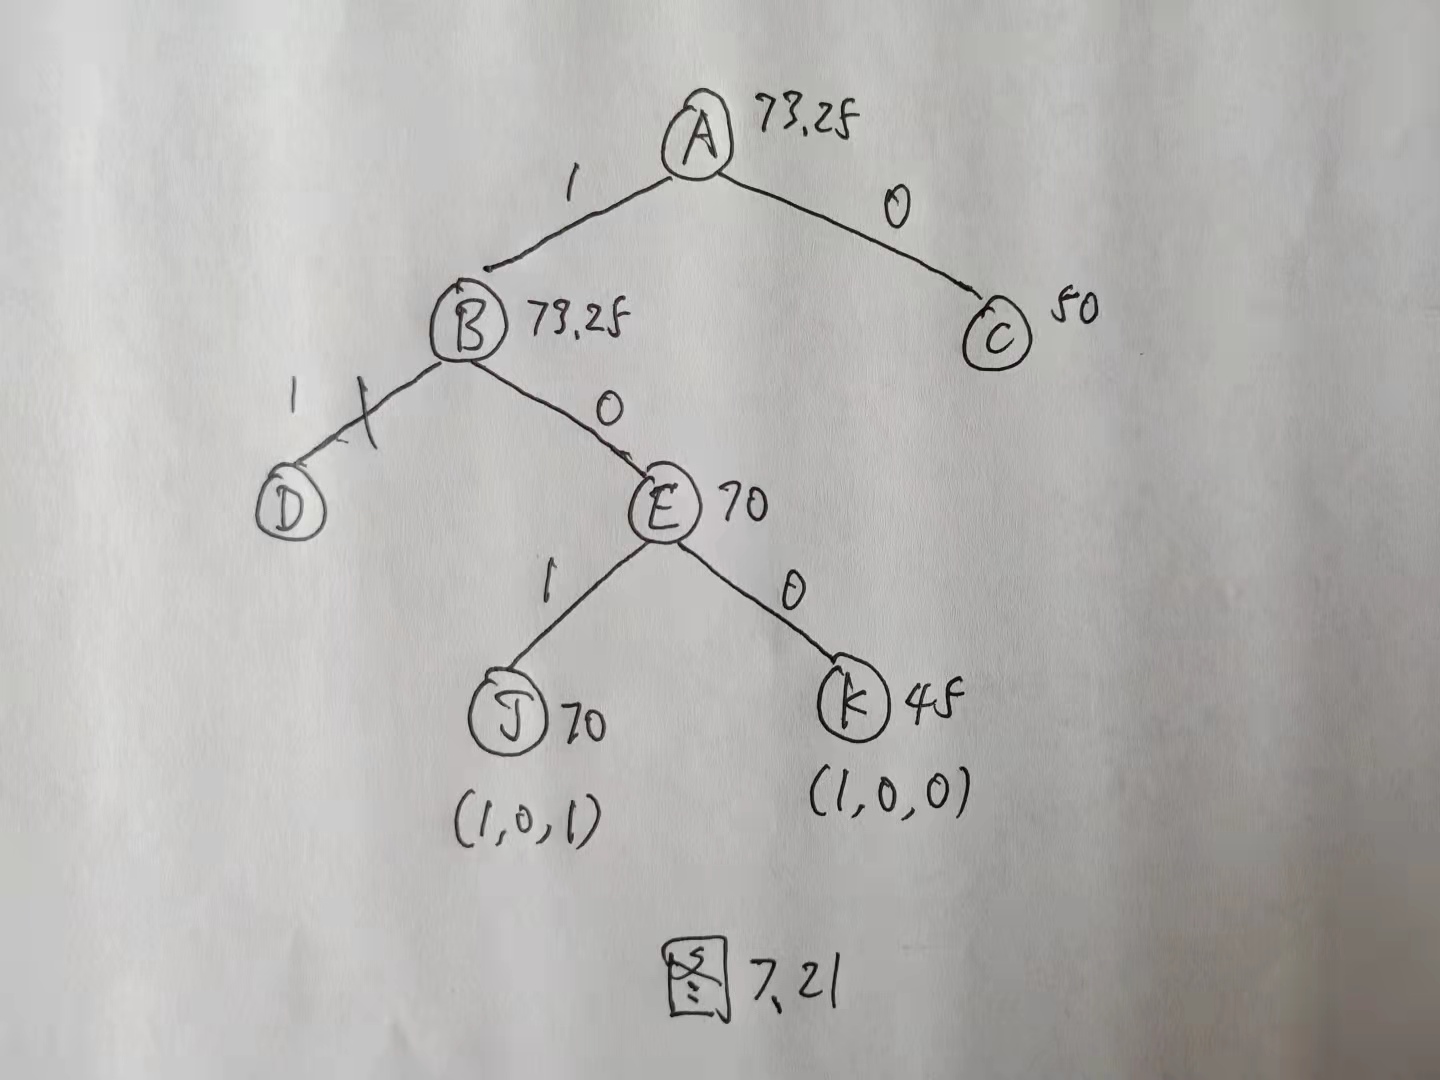 A 73.25
1 0
B 73.25
C 50
1 0
D
E 70
1 0
J 70
K 45
(1,0,1)
(1,0,0)
图 7.21